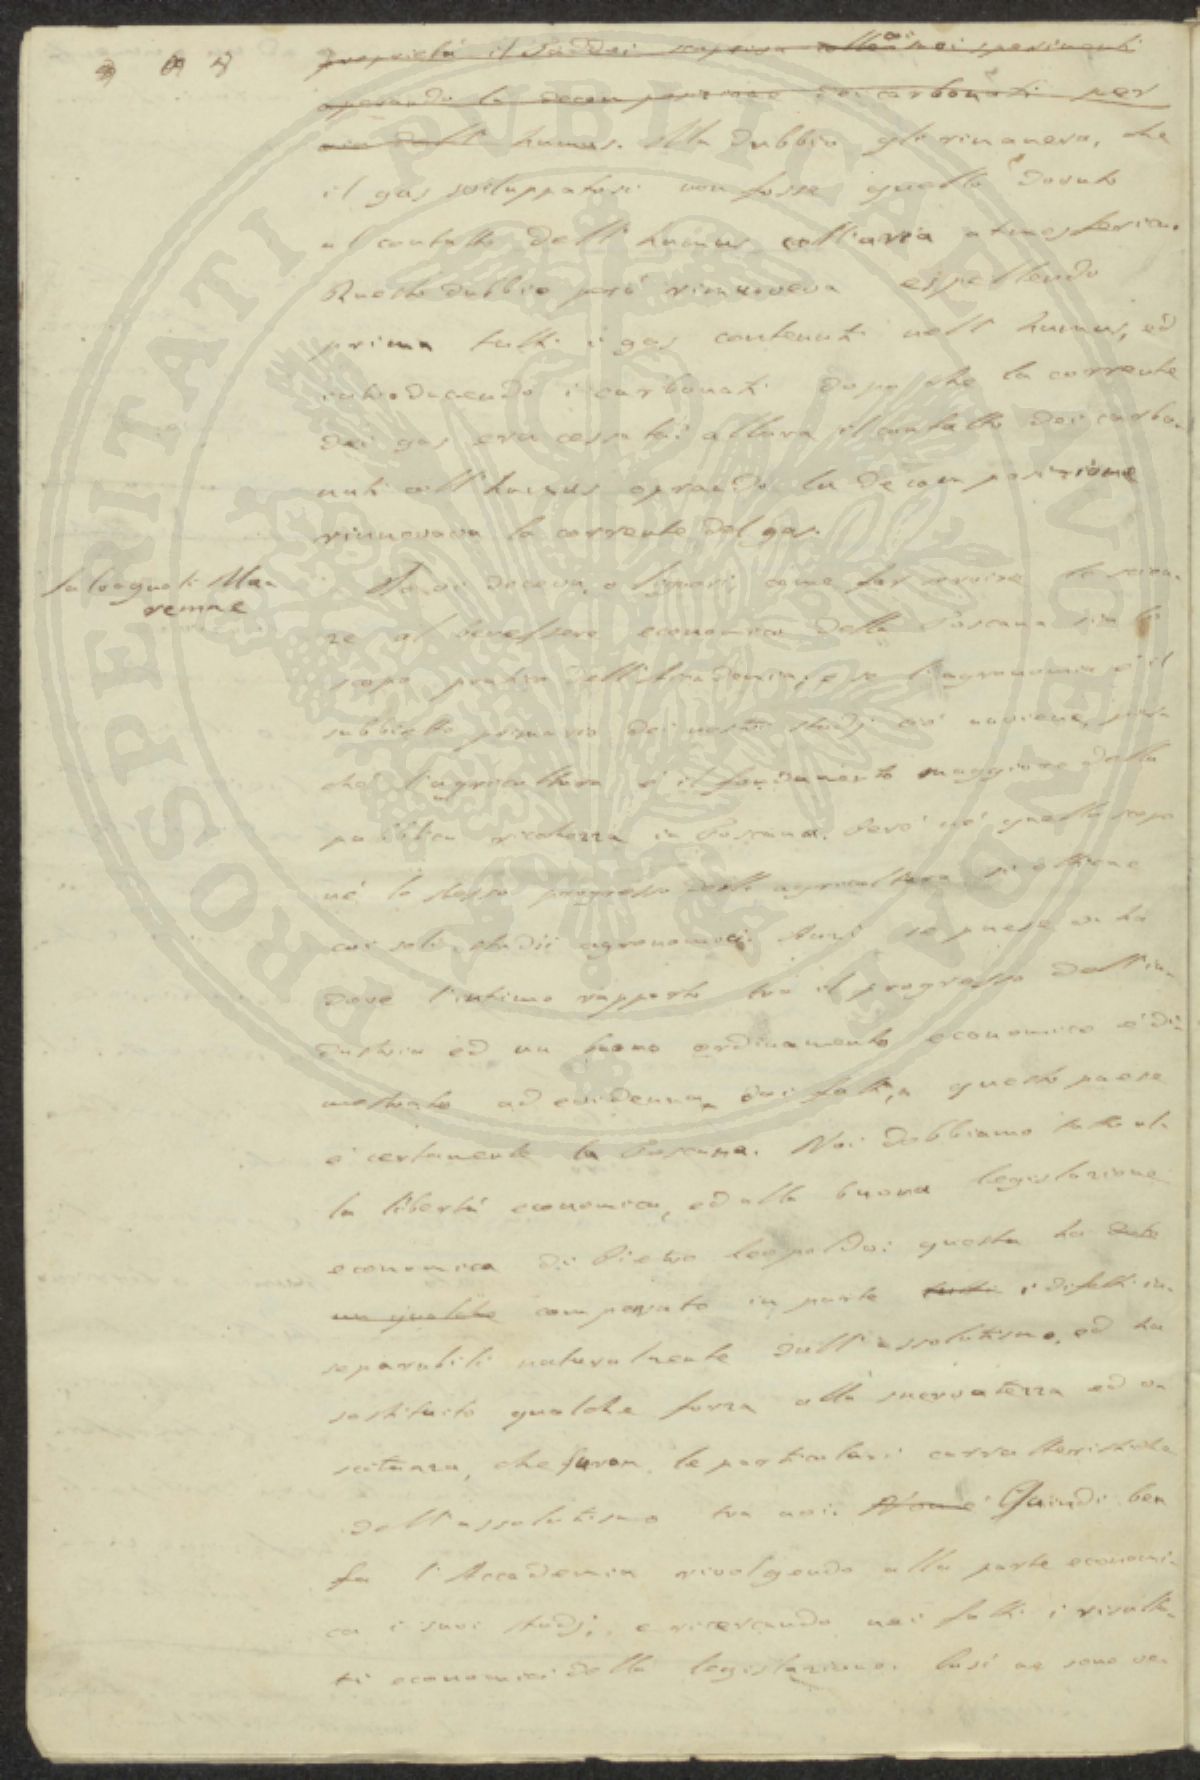 proprietà il Taddei scoprisse nei suoi sperimenti
operando la decomposizione dei carbonati per
via dell' humus. Ma dubbio gli rimaneva, che
il gas sviluppatosi non fosse quello dovuto
al contatto dell' humus coll'aria atmosferica.
Questo dubbio però rimuoveva espellendo
prima tutti i gas contenuti nell' humus, ed
introducendo i carbonati dopo che la corrente
dei gas era cessata: allora il contatto dei carbo-
nati coll' humus operando la decomposizione
rinnovava la corrente del gas.
Maremme
diceva, o Signori, come far servire le scien-
ze al benessere economico della Toscana sia lo
scopo pratico dell'Accademia; e se l'agronomia è il
subbietto primario dei nostri studj ciò avviene, per-
chè l'agricoltura è il fondamento maggiore della
pubblica ricchezza in Toscana. Però nè quello scopo
nè lo stesso progresso dell' agricoltura si ottiene
coi soli studii agronomici. Anzi se paese vi ha
dove l'intimo rapporto tra il progresso dell'in-
dustria ed un buono ordinamento economico è di-
mostrato ad evidenza dai fatti, questo paese
è certamente la Toscana. Noi dobbiamo tutto al-
la libertà economica, ed alla buona legislazione
economica di Pietro Leopoldo: questa ha dato
un qualche compensato in parte tutti i difetti in-
separabili naturalmente dall' assolutismo, ed ha
sostituito qualche forza alla snervatezza ed
che furon le particolari carratteristiche
dell'assolutismo tra noi. Quindi ben
fa l'Accademia rivolgendo alla parte economi-
ca i suoi studj, e ricercando nei fatti i risulta-
ti economici della legislazione. Così ne sono ve-